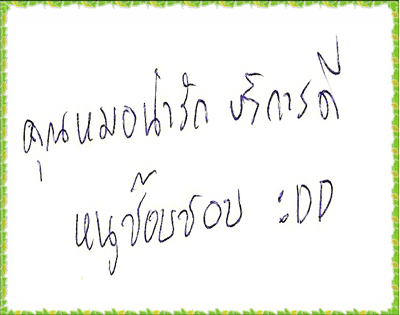 คุณหมอน่ารัก บริการดี
หนูช๊อบชอบ :DD